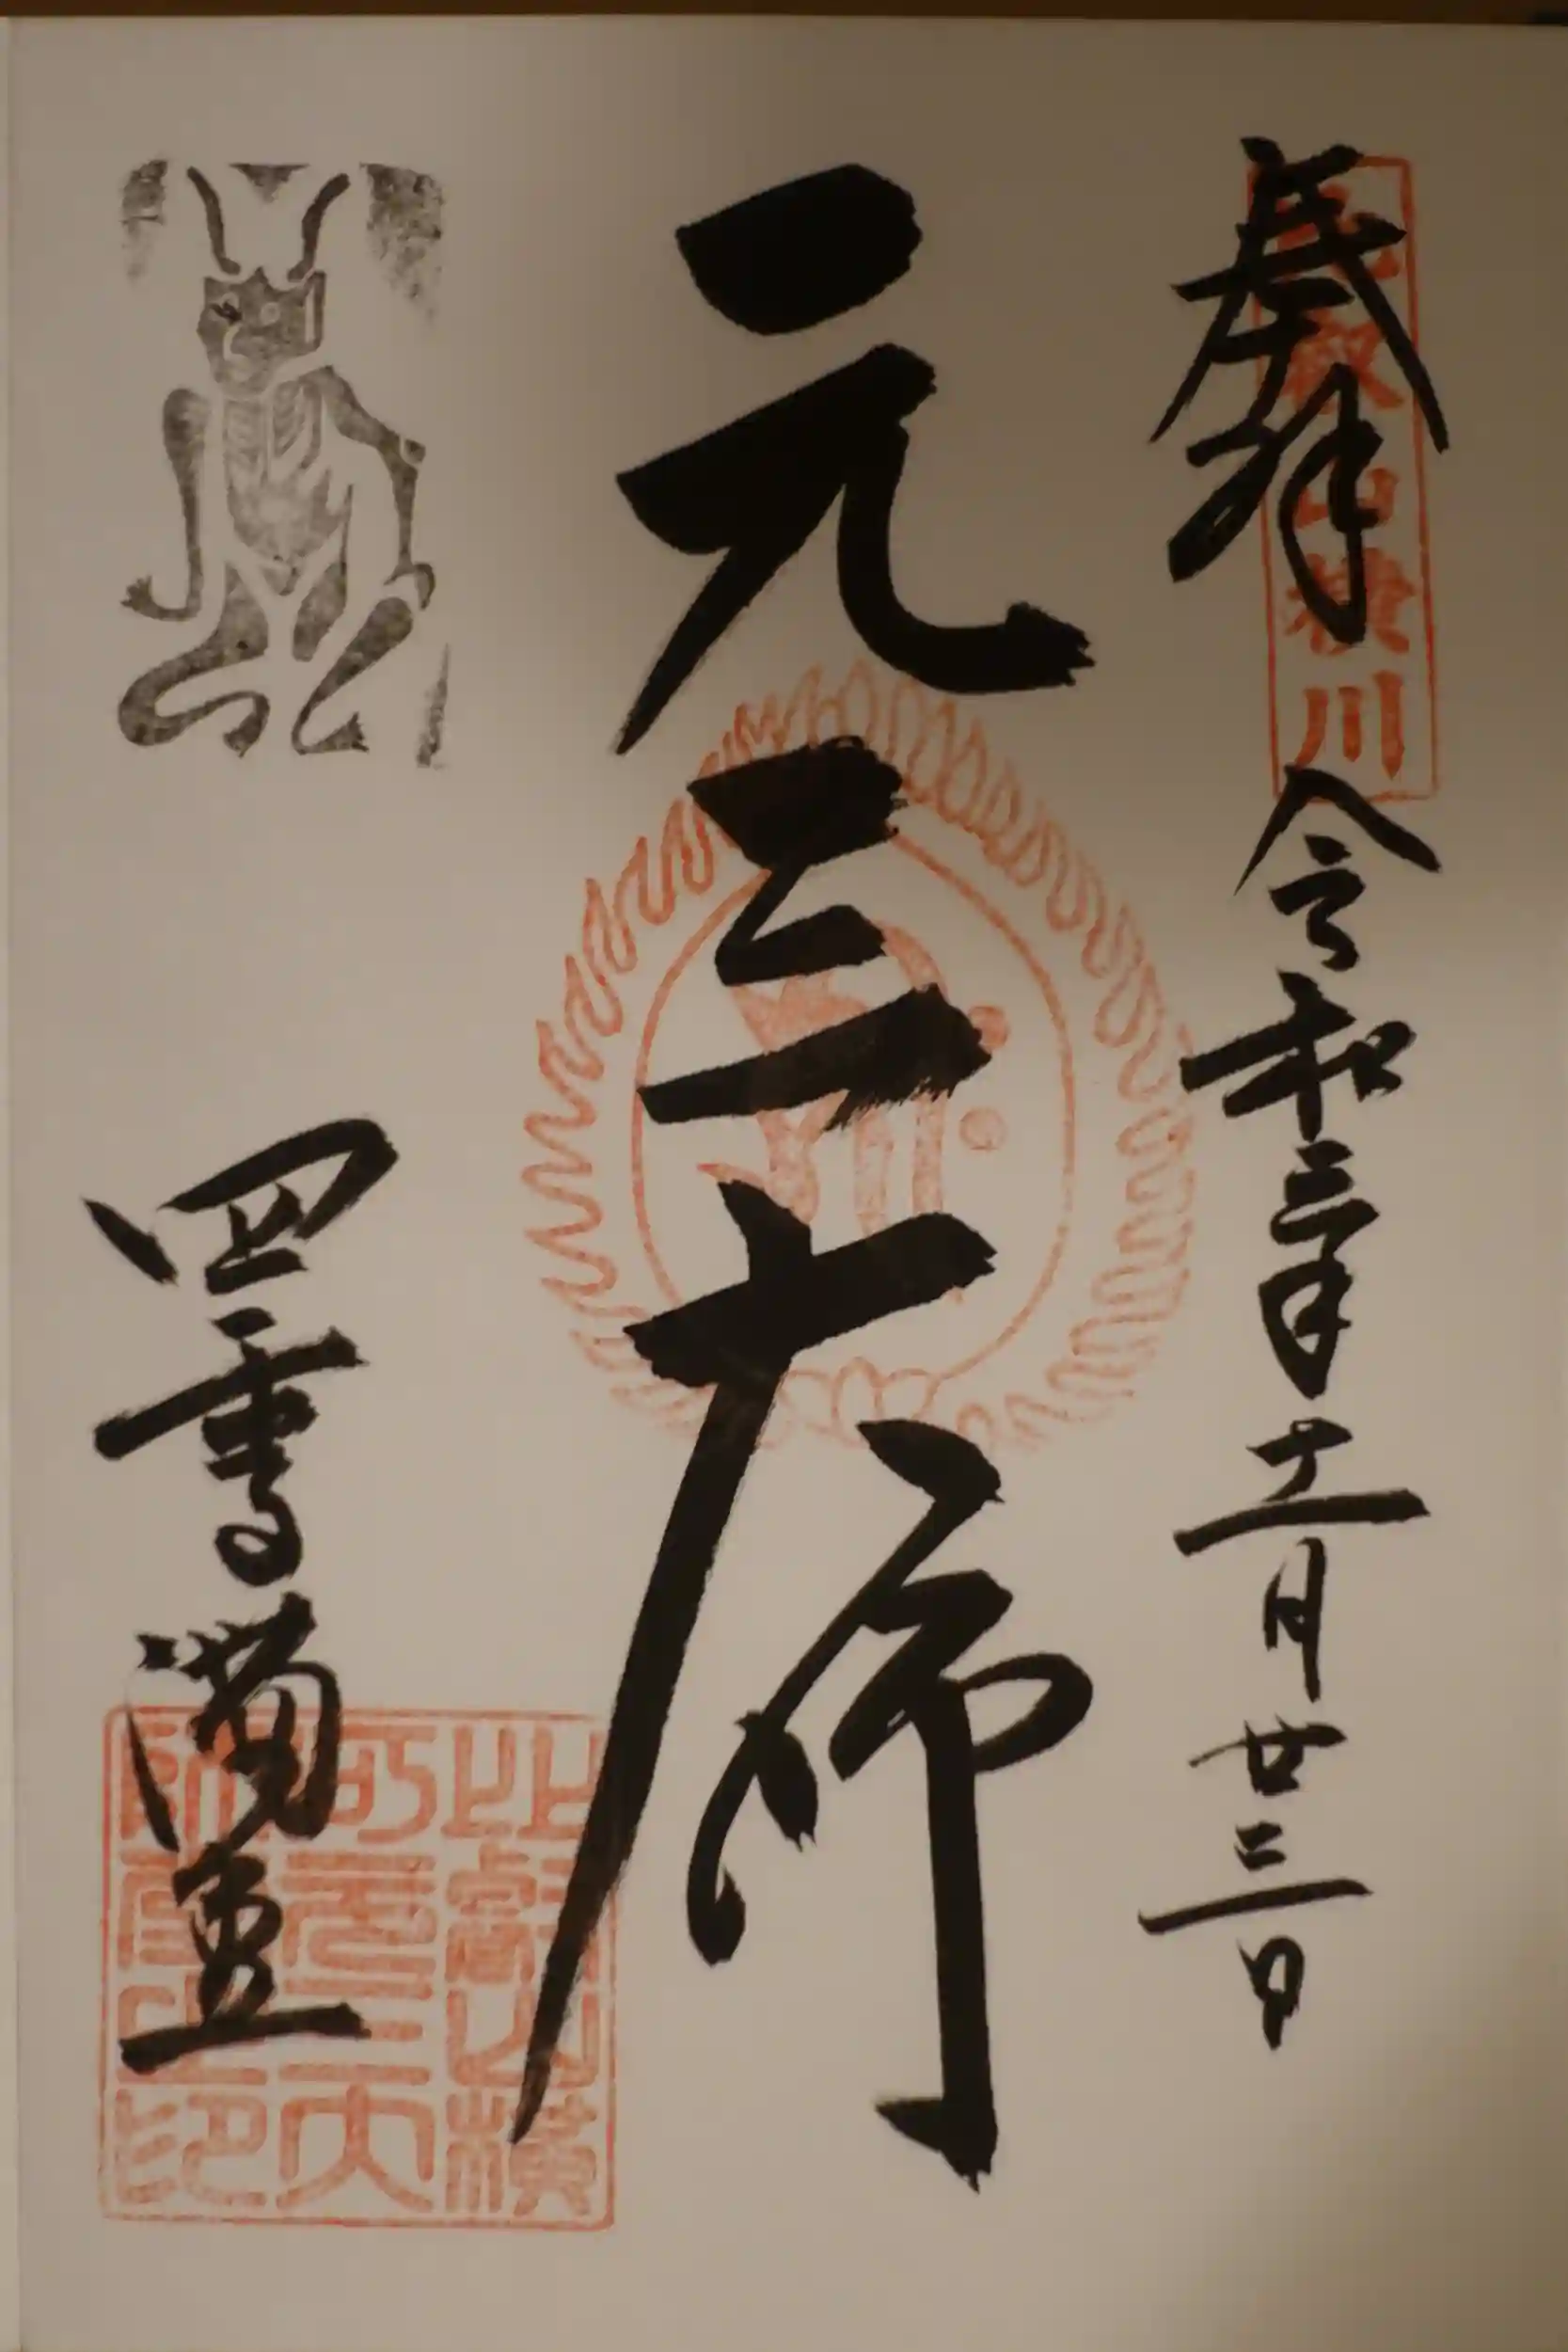 奉拝
比叡山横川
令和三年十一月廿三日
元三大師
四季講堂
比叡山横
川元三大
師堂之印